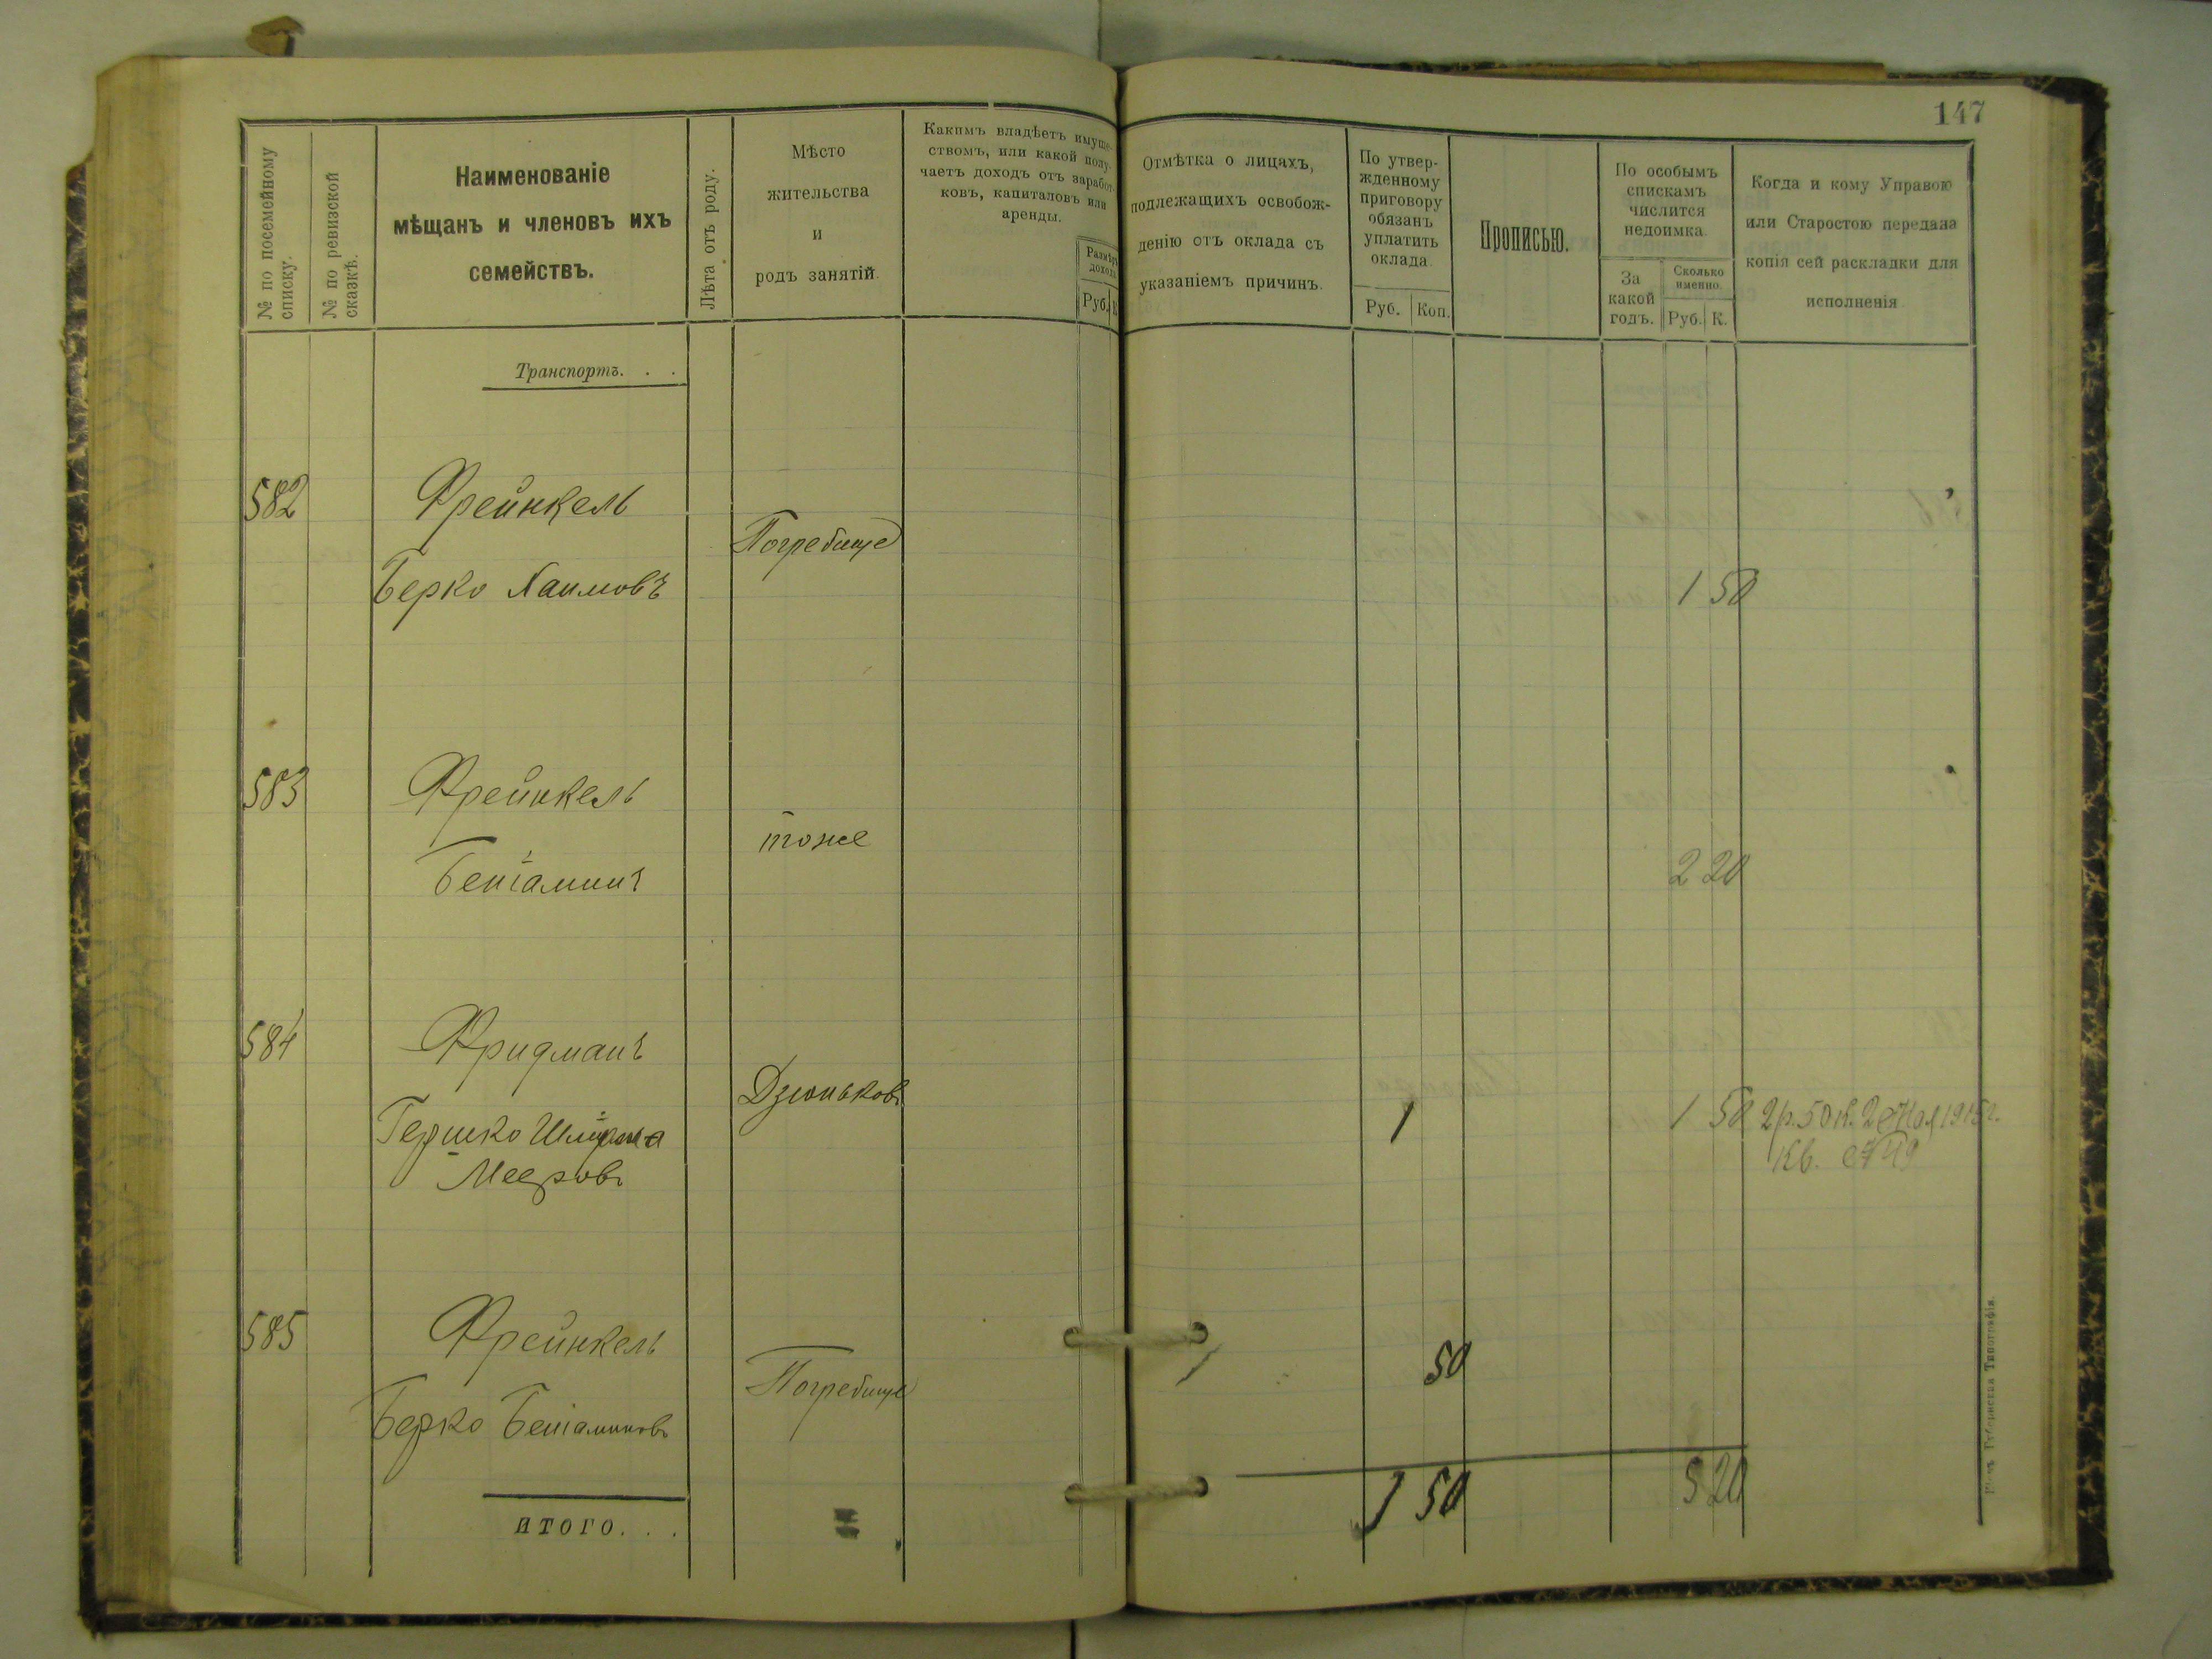 147
№ по посемейному списку.
№ по ревизской сказкѣ.
Наименованіе
мѣщанъ и членовъ ихъ
семействъ.
Лѣта отъ роду.
Мѣсто
жительства
и
родъ занятій.
Какимъ владѣетъ имуще-
ствомъ, или какой полу-
чаетъ доходъ отъ заработ-
ковъ, капиталовъ или
аренды.
Размѣръ
дохода
Руб.
К
Отмѣтка о лицахъ,
подлежащихъ освобож-
денію отъ оклада съ
указаніемъ причинъ.
По утвер-
жденному
приговору
обязанъ
уплатить
оклада
Руб. Коп.
Прописью.
По особымъ
спискамъ
числится
недоимка.
За
какой
годъ.
Сколько
именно.
Руб. К.
Когда и кому Управою
или Старостою передана
копія сей раскладки для
исполненія
Транспортъ. . .
582 Фрейнкель
Погребище
Берко Хаимовъ 1 50
583 Фрейнкель
тоже
Беніаминъ 2 20
584 Фридманъ
Дзюньковъ
Гершко 1 1 50 2р. 50к. 2 Мая 1915г.
Мееровъ Кв. №49
585 Фрейнкель
50
Погребище
Берко Беніаминовъ
1 50 5 20
ИТОГО. . .
Губернская Типографія.